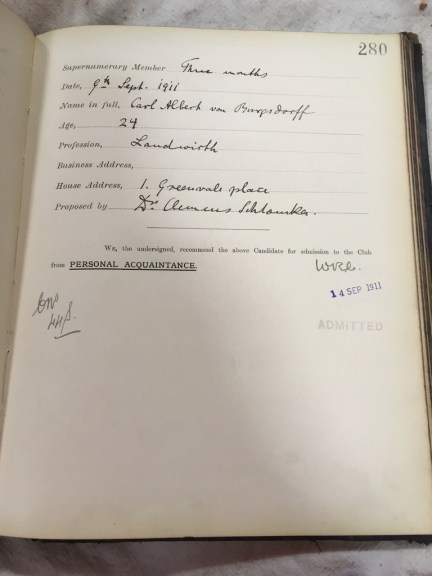 280
Supernumerary Member Three months
Date, 9th Sept. 1911
Name in full, Carl Albert von Burgsdorff
Age, 24
Profession, Landwirth
Business Address,
House Address, 1. Greenvale place
Proposed by Dr Clemens Schlomka.
We, the undersigned, recommend the above Candidate for admission to the Club
from PERSONAL ACQUAINTANCE.
14 SEP 1911
ADMITTED